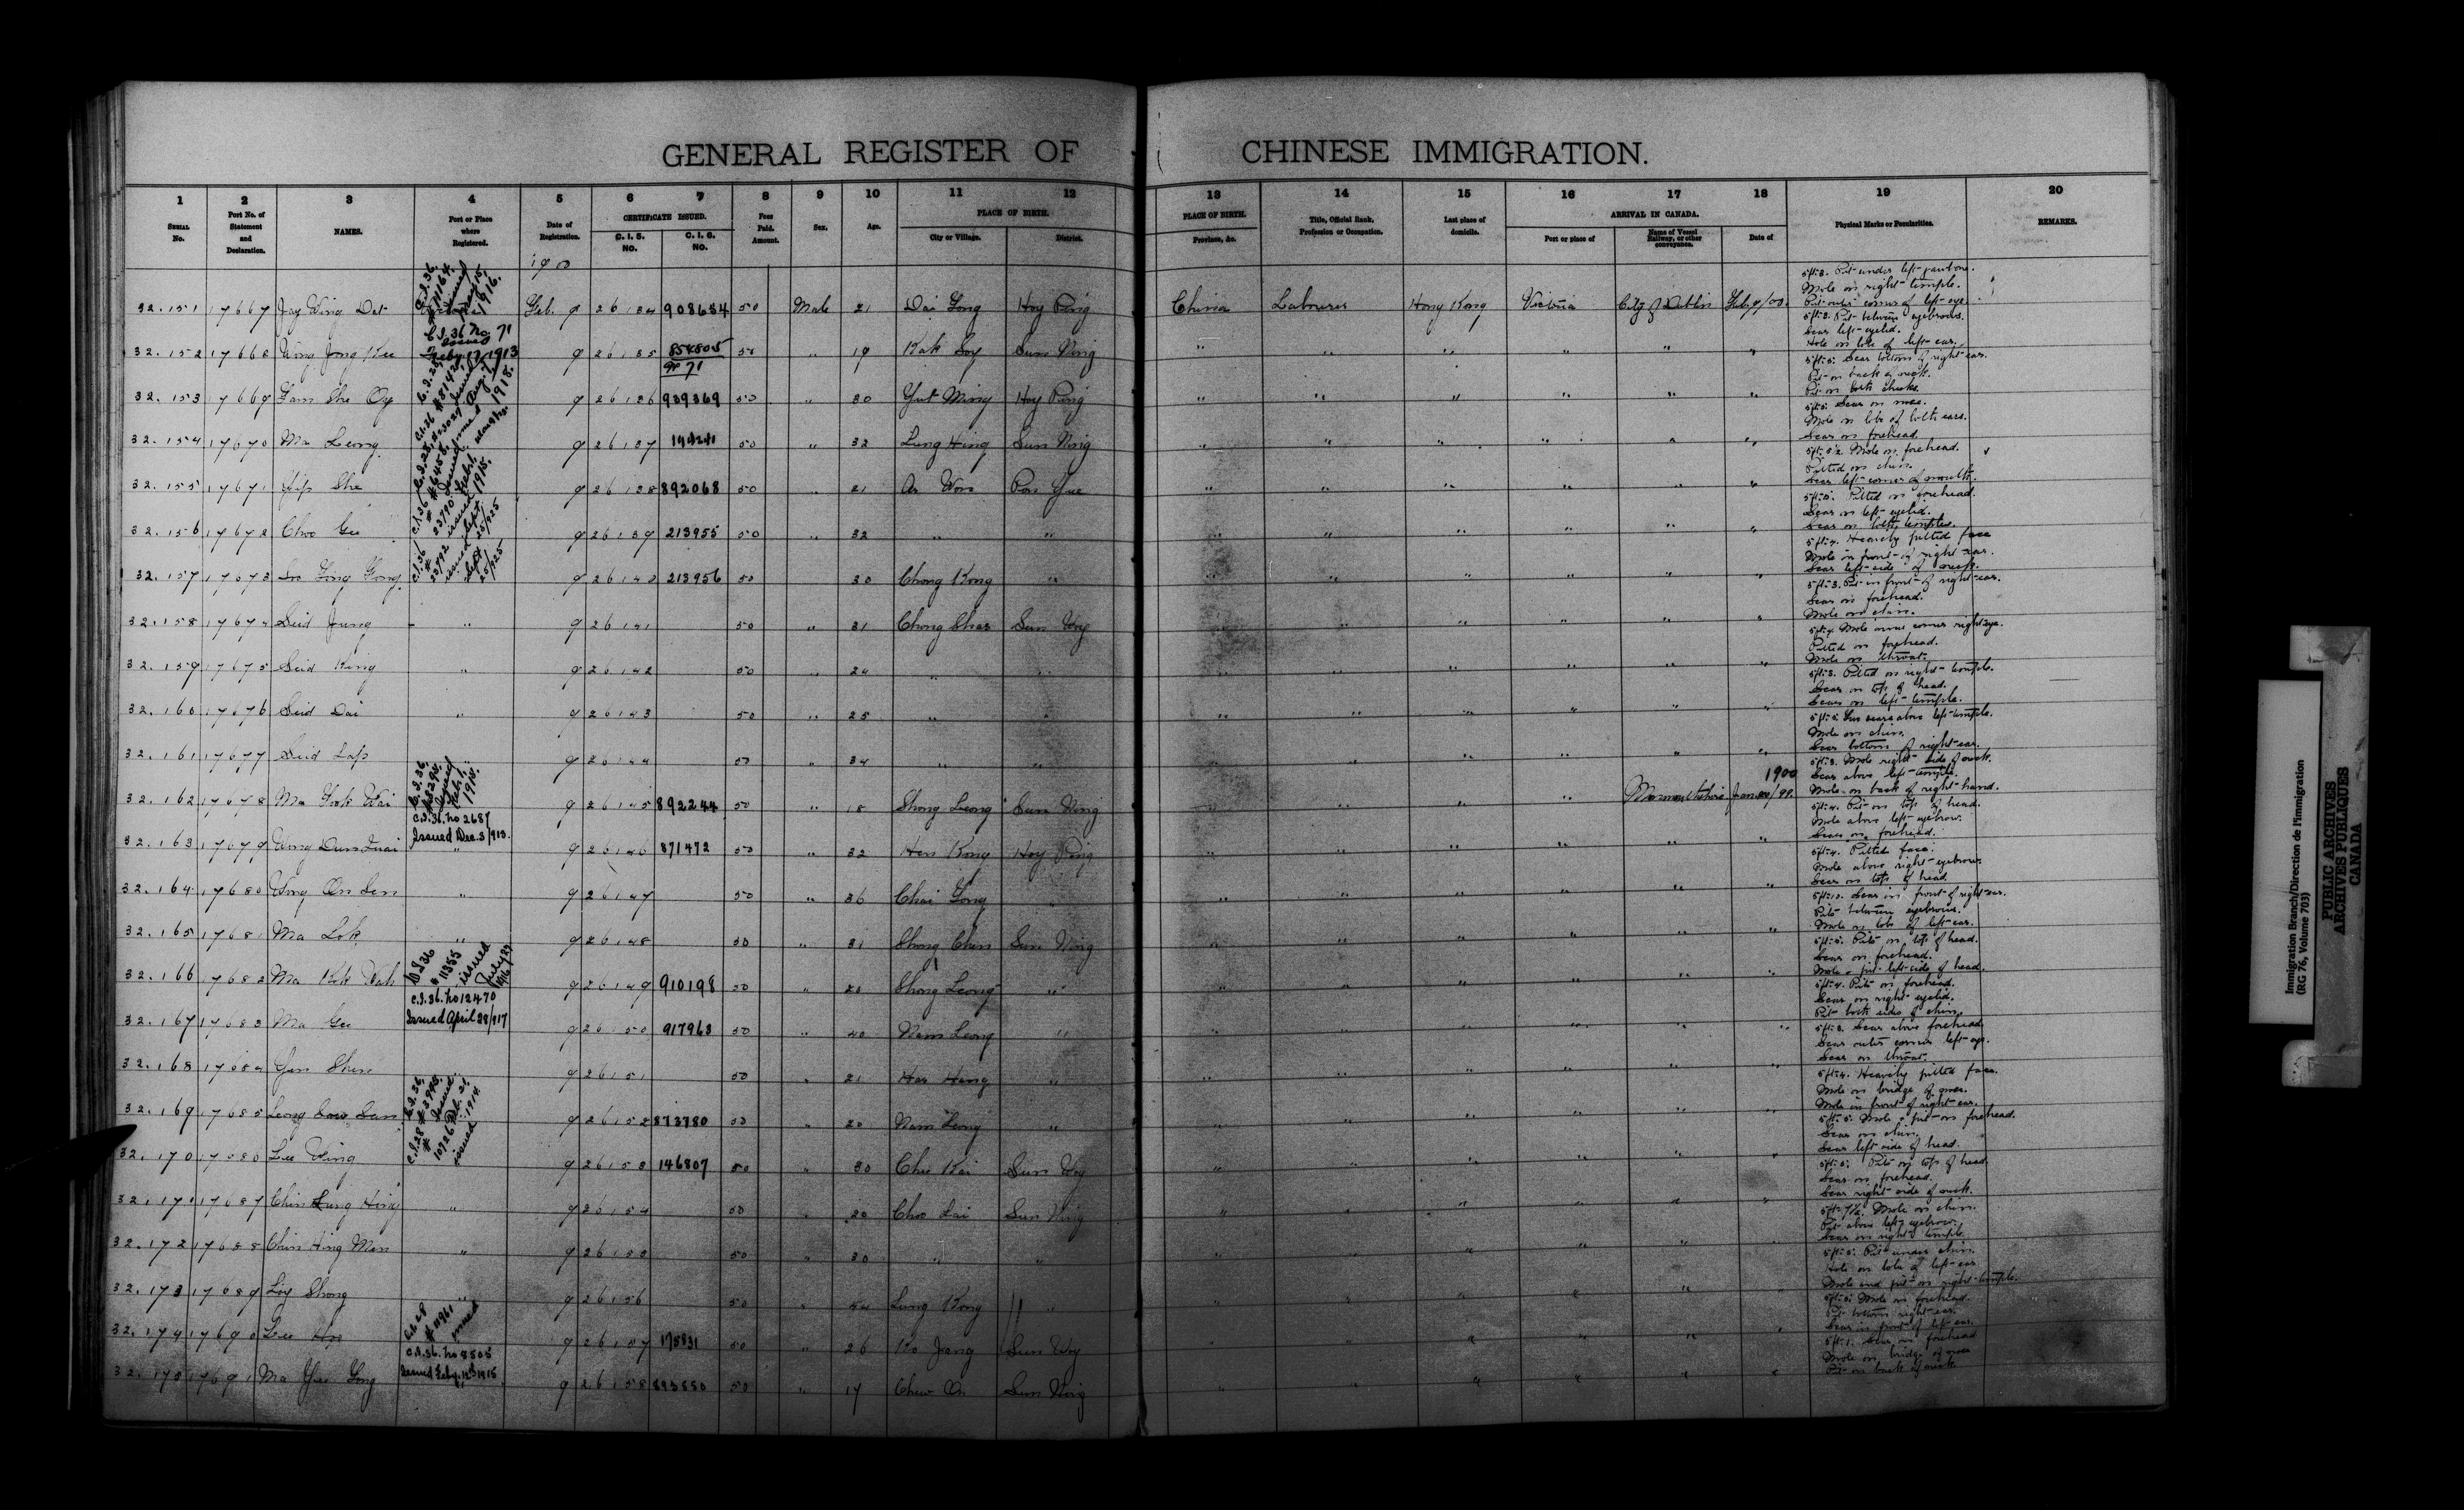 GENERAL REGISTER OF CHINESE IMMIGRATION.
1 2 3 4 5 6 7 8 9 10 11 12 13 14 15 16 17 18 19 20
SERIAL No. Port No. of Statement and Declaration. NAMES. Port or Place where Registered. Date of Registration. CERTIFICATE ISSUED. C. I. 5. NO. C. I. 6. NO. Fees Paid. Amount. Sex. Age. PLACE OF BIRTH. City or Village. District. PLACE OF BIRTH. Province, &c. Title, Official Rank, Profession or Occupation. Last place of domicile. ARRIVAL IN CANADA. Port or place of Name of Vessel Railway, or other conveyance. Date of Physical Marks or Peculiarities. REMARKS.
1900
32.151 17667 Jay Wing Dat Feb. 9 26134 908654 50 Male 21 Dai Gong Hoy Ping China Labourer Hong Kong Victoria City of Dublin Feb. 9/00. 5ft.3. Pit under left jawbone. Mole on right temple. Pit outer corner of left eye.
32.152 17668 Wong Jong Kee C.I.36 No 71 issued Feby. 17/1913 9 26135 854805 or 71 50 " 19 Kak Loy Sun Ning " " " " " " 5ft.3. Pit between eyebrows. Scar left eyelid. Hole on lobe of left ear.
32.153 17669 Gam She Oy 9 26136 939369 50 " 30 Yut Ming Hoy Ping " " " " " " 5ft.5. Scar bottom of right ear. Pit on back of neck. Pit on both cheeks.
32.154 17670 Ma Leong 9 26137 194241 50 " 32 Lung Hing Sun Ning " " " " " " 5ft.5. Scar on nose. Mole on lobe of both ears. Scar on forehead.
32.155 17671 Yip She 9 26138 892068 50 " 21 Ar Won Pon Yue " " " " " " 5ft.5½. Mole on forehead. Pitted on chin. Scar left corner of mouth.
32.156 17672 Choo Gee 9 26139 213955 50 " 32 " " " " " " " " 5ft.5. Pitted on forehead. Scar on left eyelid. Scar on both temples.
32.157 17673 Gong C.I.36 # 23792 issued Sept 25/925 9 26140 213956 50 " 30 Chong Kong " " " " " " " 5ft.4. Heavily pitted face Mole in front of right ear. Scar left side of neck.
32.158 17674 Seid Jung " 9 26141 50 " 31 Chong Shas Sun Woy " " " " " " 5ft.3. Pit in front of right ear. Scar on forehead. Mole on chin.
32.159 17675 Seid King " 9 26142 50 " 24 " " " " " " " " 5ft.4. Mole inner corner right eye. Pitted on forehead. Mole on throat.
32.160 17676 Seid Dai " 9 26143 50 " 25 " " " " " " " " 5ft.3. Pitted on right temple. Scar on top of head. Scar on left temple.
32.161 17677 Seid Lap 9 26144 50 " 34 " " " " " " " " 5ft.5. Two scars above left temple. Mole on chin. Scar bottom of right ear.
32.162 17678 Ma Gook Wai 9 26145 892244 50 " 18 Shong Leong Sun Ning " " " " Monmouthshire 1900 5ft.3. Mole right side of neck. Scar above left temple. Mole on back of right hand.
32.163 17679 Wong Dun C.I.36. No 2687 Issued Dec. 3/913. " 9 26146 871472 50 " 32 Hen Kong Hoy Ping " " " " " " 5ft.4. Pit on top of head. Mole above left eyebrow. Scar on forehead.
32.164 17680 Wong On Sen " 9 26147 50 " 36 Chai Gong " " " " " " " 5ft.4. Pitted face. Mole above right eyebrow. Scar on top of head
32.165 17681 Ma Lok " 9 26148 50 " 31 Shong Chin Sun Ning " " " " " " 5ft.10. Scar in front of right ear. Pits between eyebrows. Mole on lobe of left ear.
32.166 17682 Ma Kok Wah # 11355 issued 9 26149 910198 50 " 20 Shong Leong " " " " " " " 5ft.5. Pits on top of head. Scar on forehead. Mole & pit left side of head.
32.167 17683 Ma Gee C.I.36. No 12470 Issued April 28/917 9 26150 917963 50 " 40 Nam Leong " " " " " " " 5ft.4. Pits on forehead. Scar on right eyelid. Pit both sides of chin.
32.168 17684 Yen Shen 9 26151 50 " 21 Har Hang " " " " " " " 5ft.3. Scar above forehead. Scar outer corner left eye. Scar on throat.
32.169 17685 Leong Sow Sun 9 26152 873780 50 " 20 Nam Leong " " " " " " " 5ft.4. Heavily pitted face. Mole on bridge of nose. Mole in front of right ear.
32.170 17686 Lee Wing 9 26153 146807 50 " 30 Chu Kai Sun Woy " " " " " " 5ft.5. Mole & pit on forehead. Scar on chin. Scar left side of head.
32.171 17687 Chin Lung Hing " 9 26154 50 " 20 Choo Lai Sun Ning " " " " " " 5ft.5. Pits on top of head. Scar on forehead. Scar right side of neck.
32.172 17688 Chin Hing Man " 9 26155 50 " 30 " " " " " " " " 5ft.7½. Mole on chin. Pit above left eyebrow. Scar on right temple.
32.173 17689 Loy Shong " 9 26156 50 " 54 Lung Kong " " " " " " " 5ft.5. Pit under chin. Hole on lobe of left ear. Mole and pit on right temple.
32.174 17690 Lee Hop 9 26157 175831 50 " 26 Ko Jang Sun Woy " " " " " " 5ft.5. Mole on forehead. Pit bottom right ear. Scar in front of left ear.
32.175 17691 Ma Yee Gong C.I.36. No 8505 Issued Feby. 12th 1915 " 9 26158 893550 50 " 17 Chew On Sun Ning " " " " " " 5ft.1. Scar on forehead Mole on bridge of nose Pit on back of neck
Immigration Branch/Direction de l'immigration
(RG 76, Volume 703)
PUBLIC ARCHIVES
ARCHIVES PUBLIQUES
CANADA